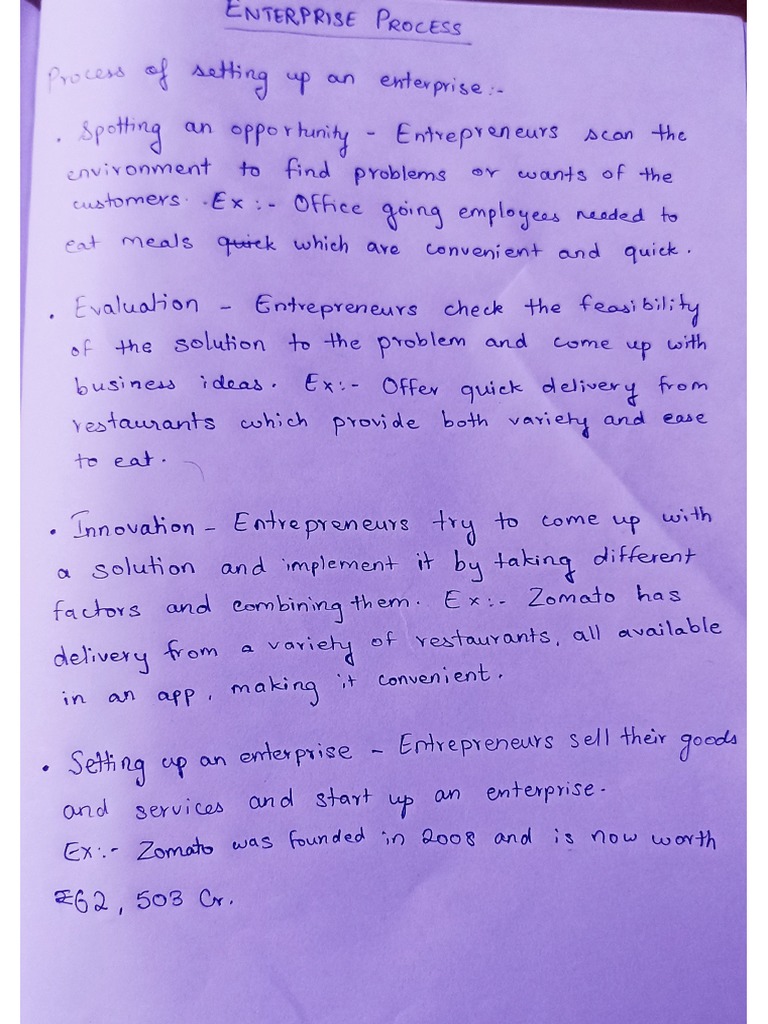 ENTERPRISE PROCESS
Process of setting up an enterprise:-
• Spotting an opportunity - Entrepreneurs scan the
environment to find problems or wants of the
customers. Ex:- Office going employees needed to
eat meals quick which are convenient and quick.
• Evaluation - Entrepreneurs check the feasibility
of the solution to the problem and come up with
business ideas. Ex:- Offer quick delivery from
restaurants which provide both variety and ease
to eat.
• Innovation - Entrepreneurs try to come up with
a solution and implement it by taking different
factors and combining them. Ex:- Zomato has
delivery from a variety of restaurants, all available
in an app, making it convenient.
• Setting up an enterprise - Entrepreneurs sell their goods
and services and start up an enterprise.
Ex:- Zomato was founded in 2008 and is now worth
₹62,503 Cr.